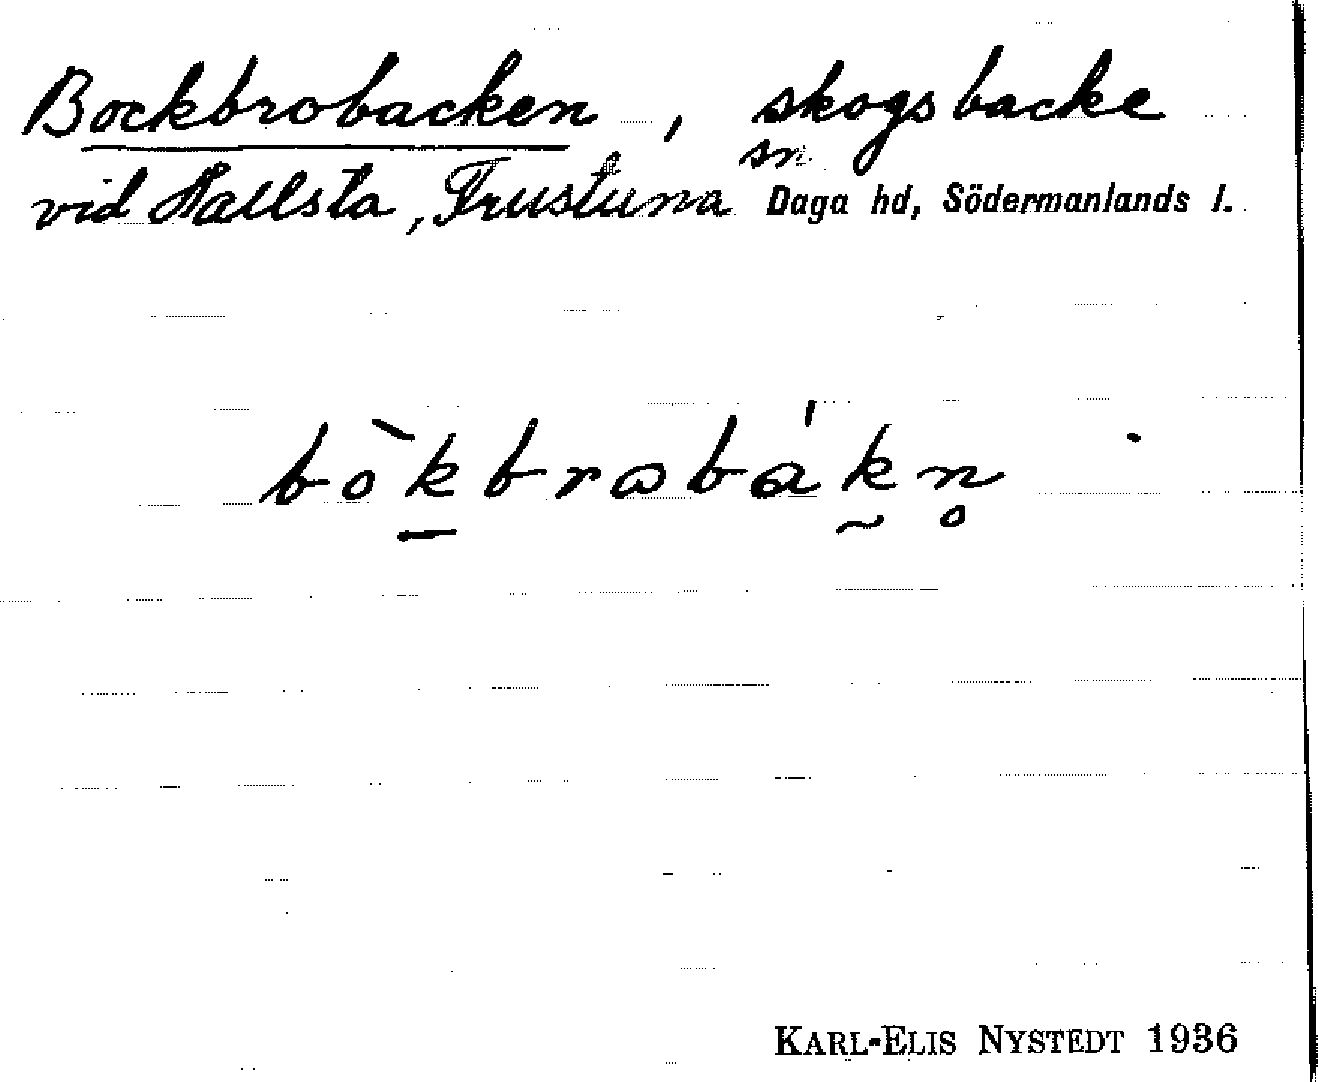 Bockbrobacken, skogsbacke
vid Hallsta, Frustuna sn Daga hd, Södermanlands l.
bòkbrωbákn̥
KARL-ELIS NYSTEDT 1936